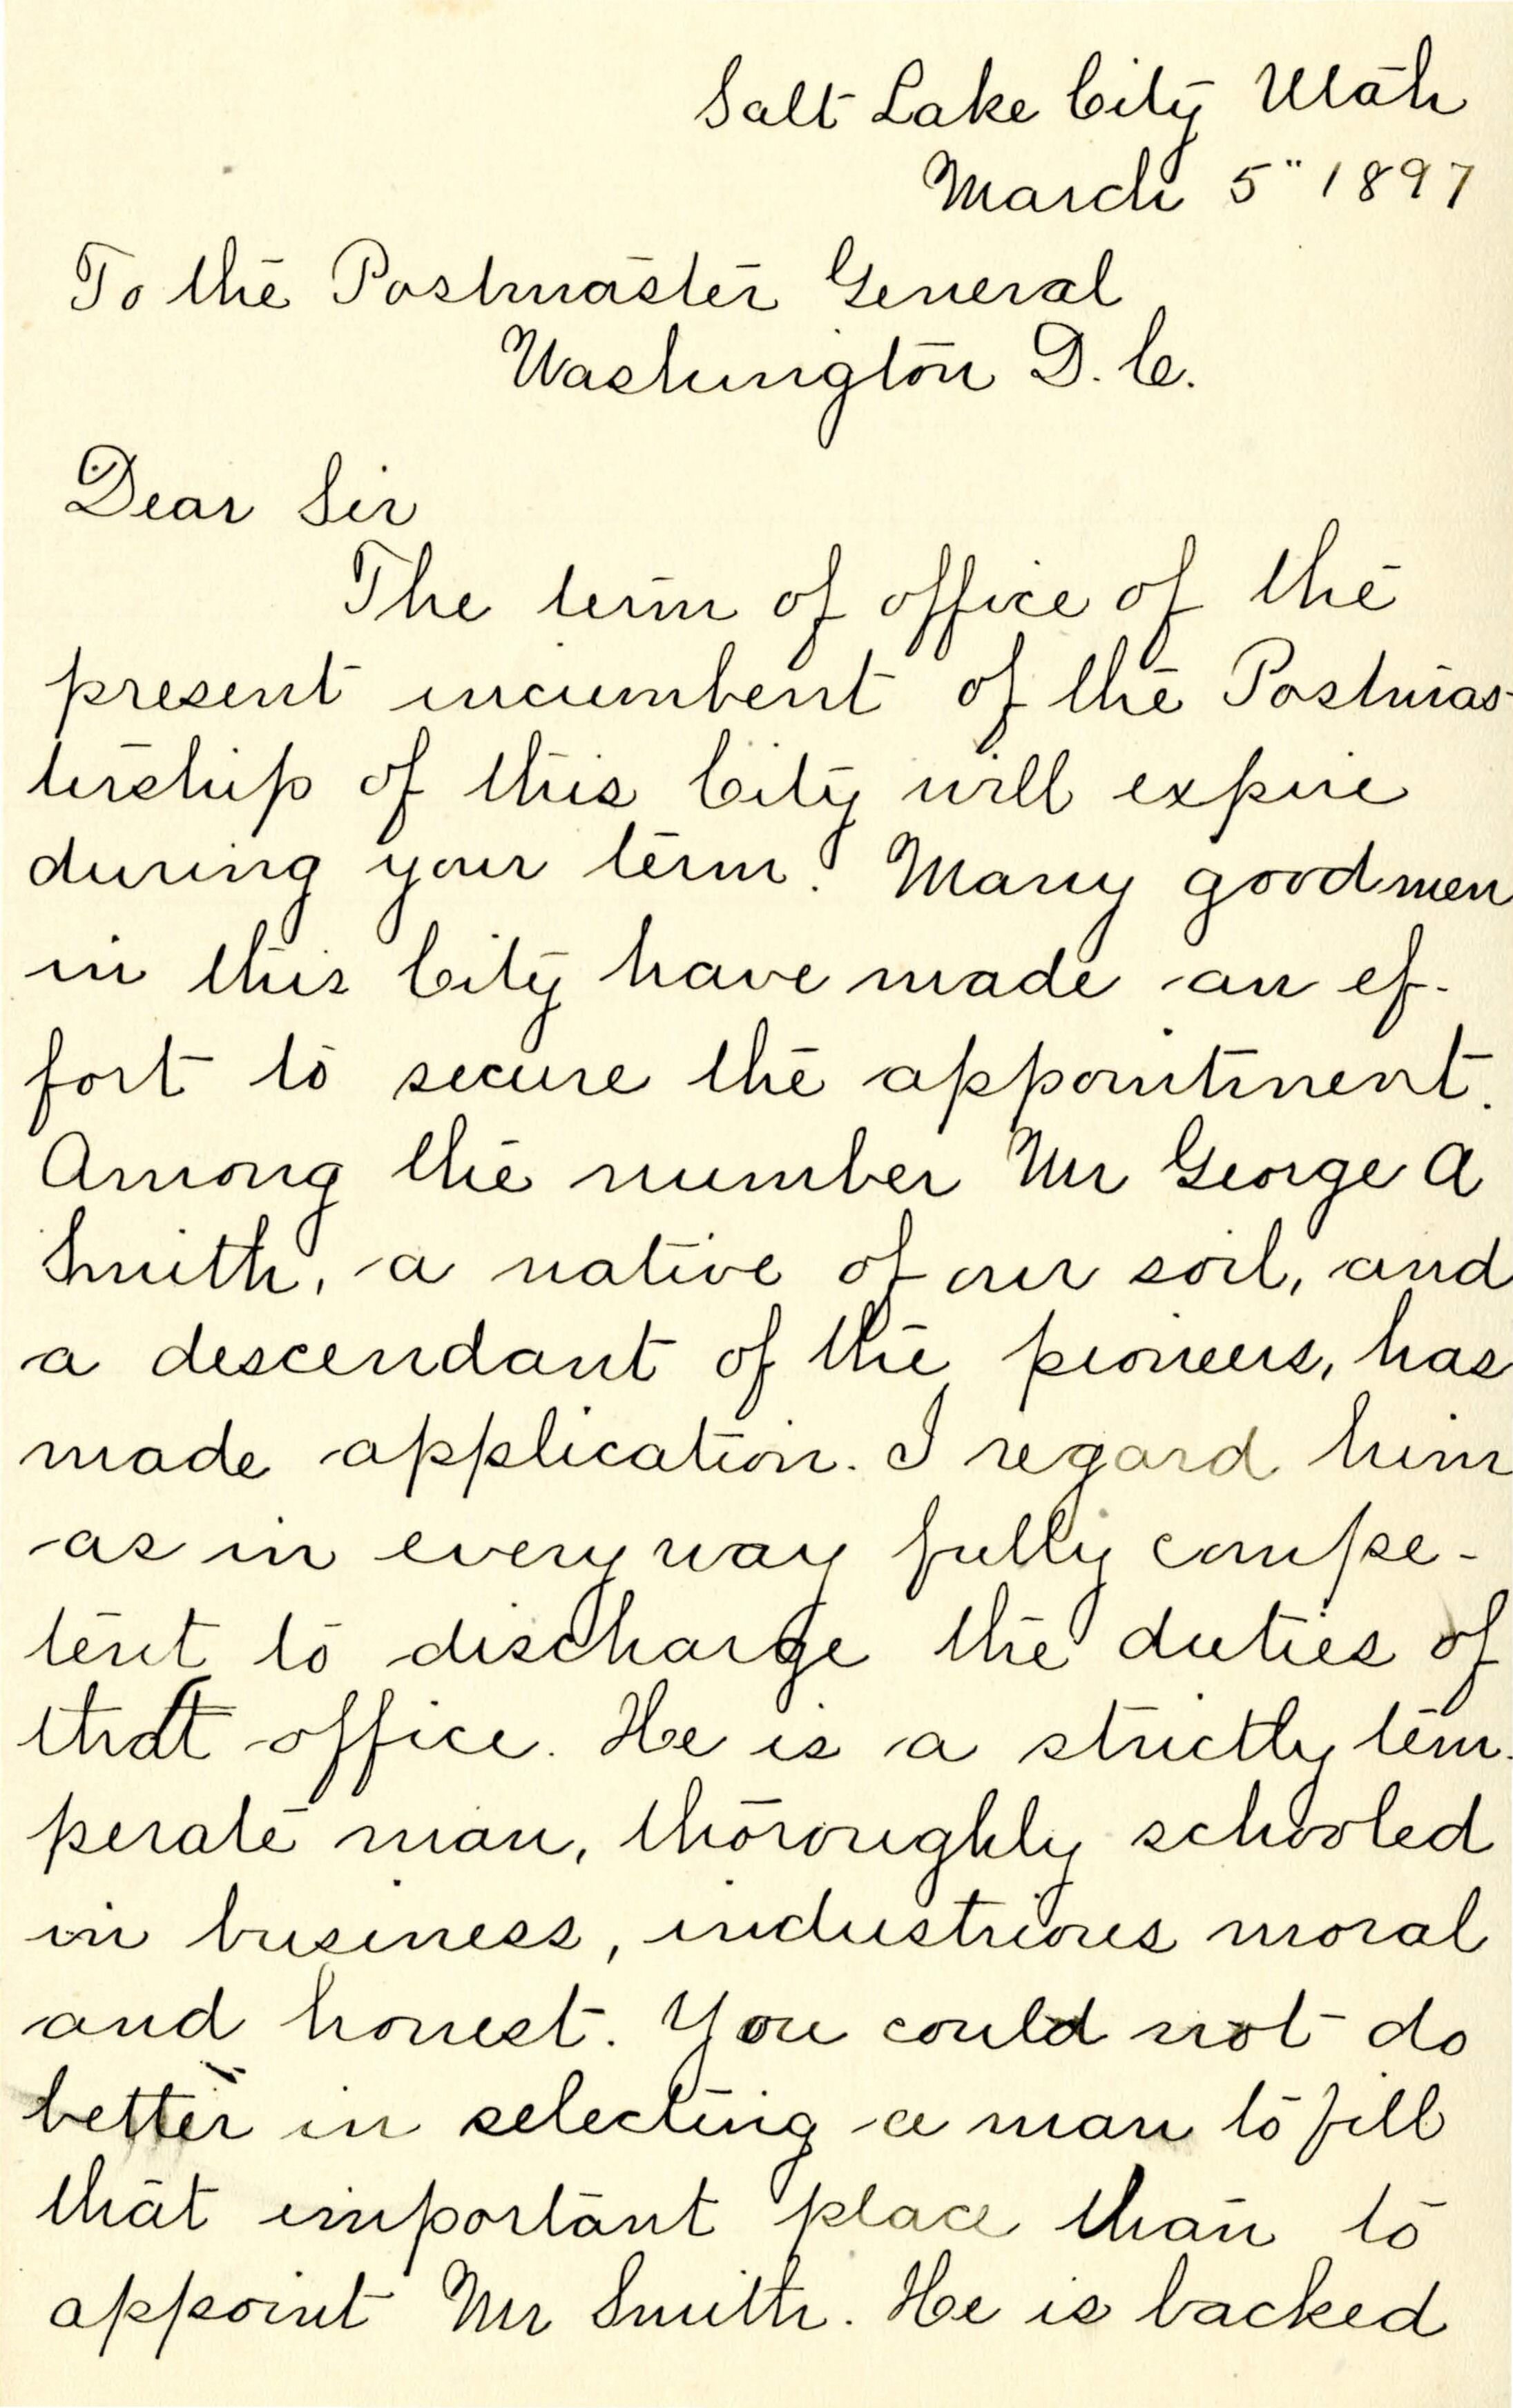 Salt Lake City Utah
March 5" 1897
To the Postmaster General
Washington D. C.
Dear Sir
The term of office of the
present incumbent of the Postmas-
tership of this City will expire
during your term. Many good men
in this City have made an ef-
fort to secure the appointment.
Among the number Mr George A
Smith, a native of our soil, and
a descendant of the pioneers, has
made application. I regard him
as in every way fully compe-
tent to discharge the duties of
that office. He is a strictly tem-
perate man, thoroughly schooled
in business, industrious moral
and honest. You could not do
better in selecting a man to fill
that important place than to
appoint Mr Smith. He is backed